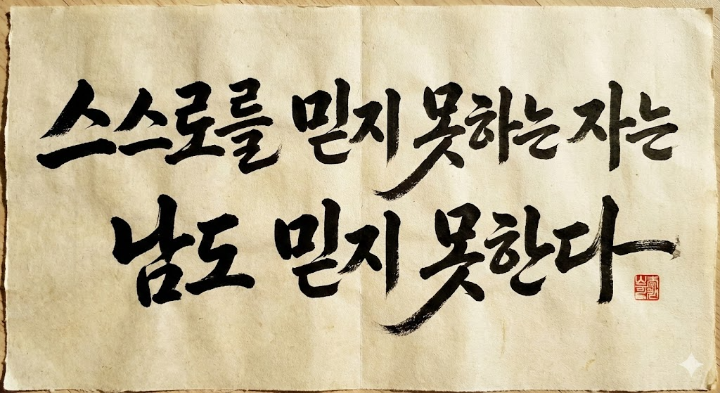 스스로를 믿지 못하는 자는
남도 믿지 못한다